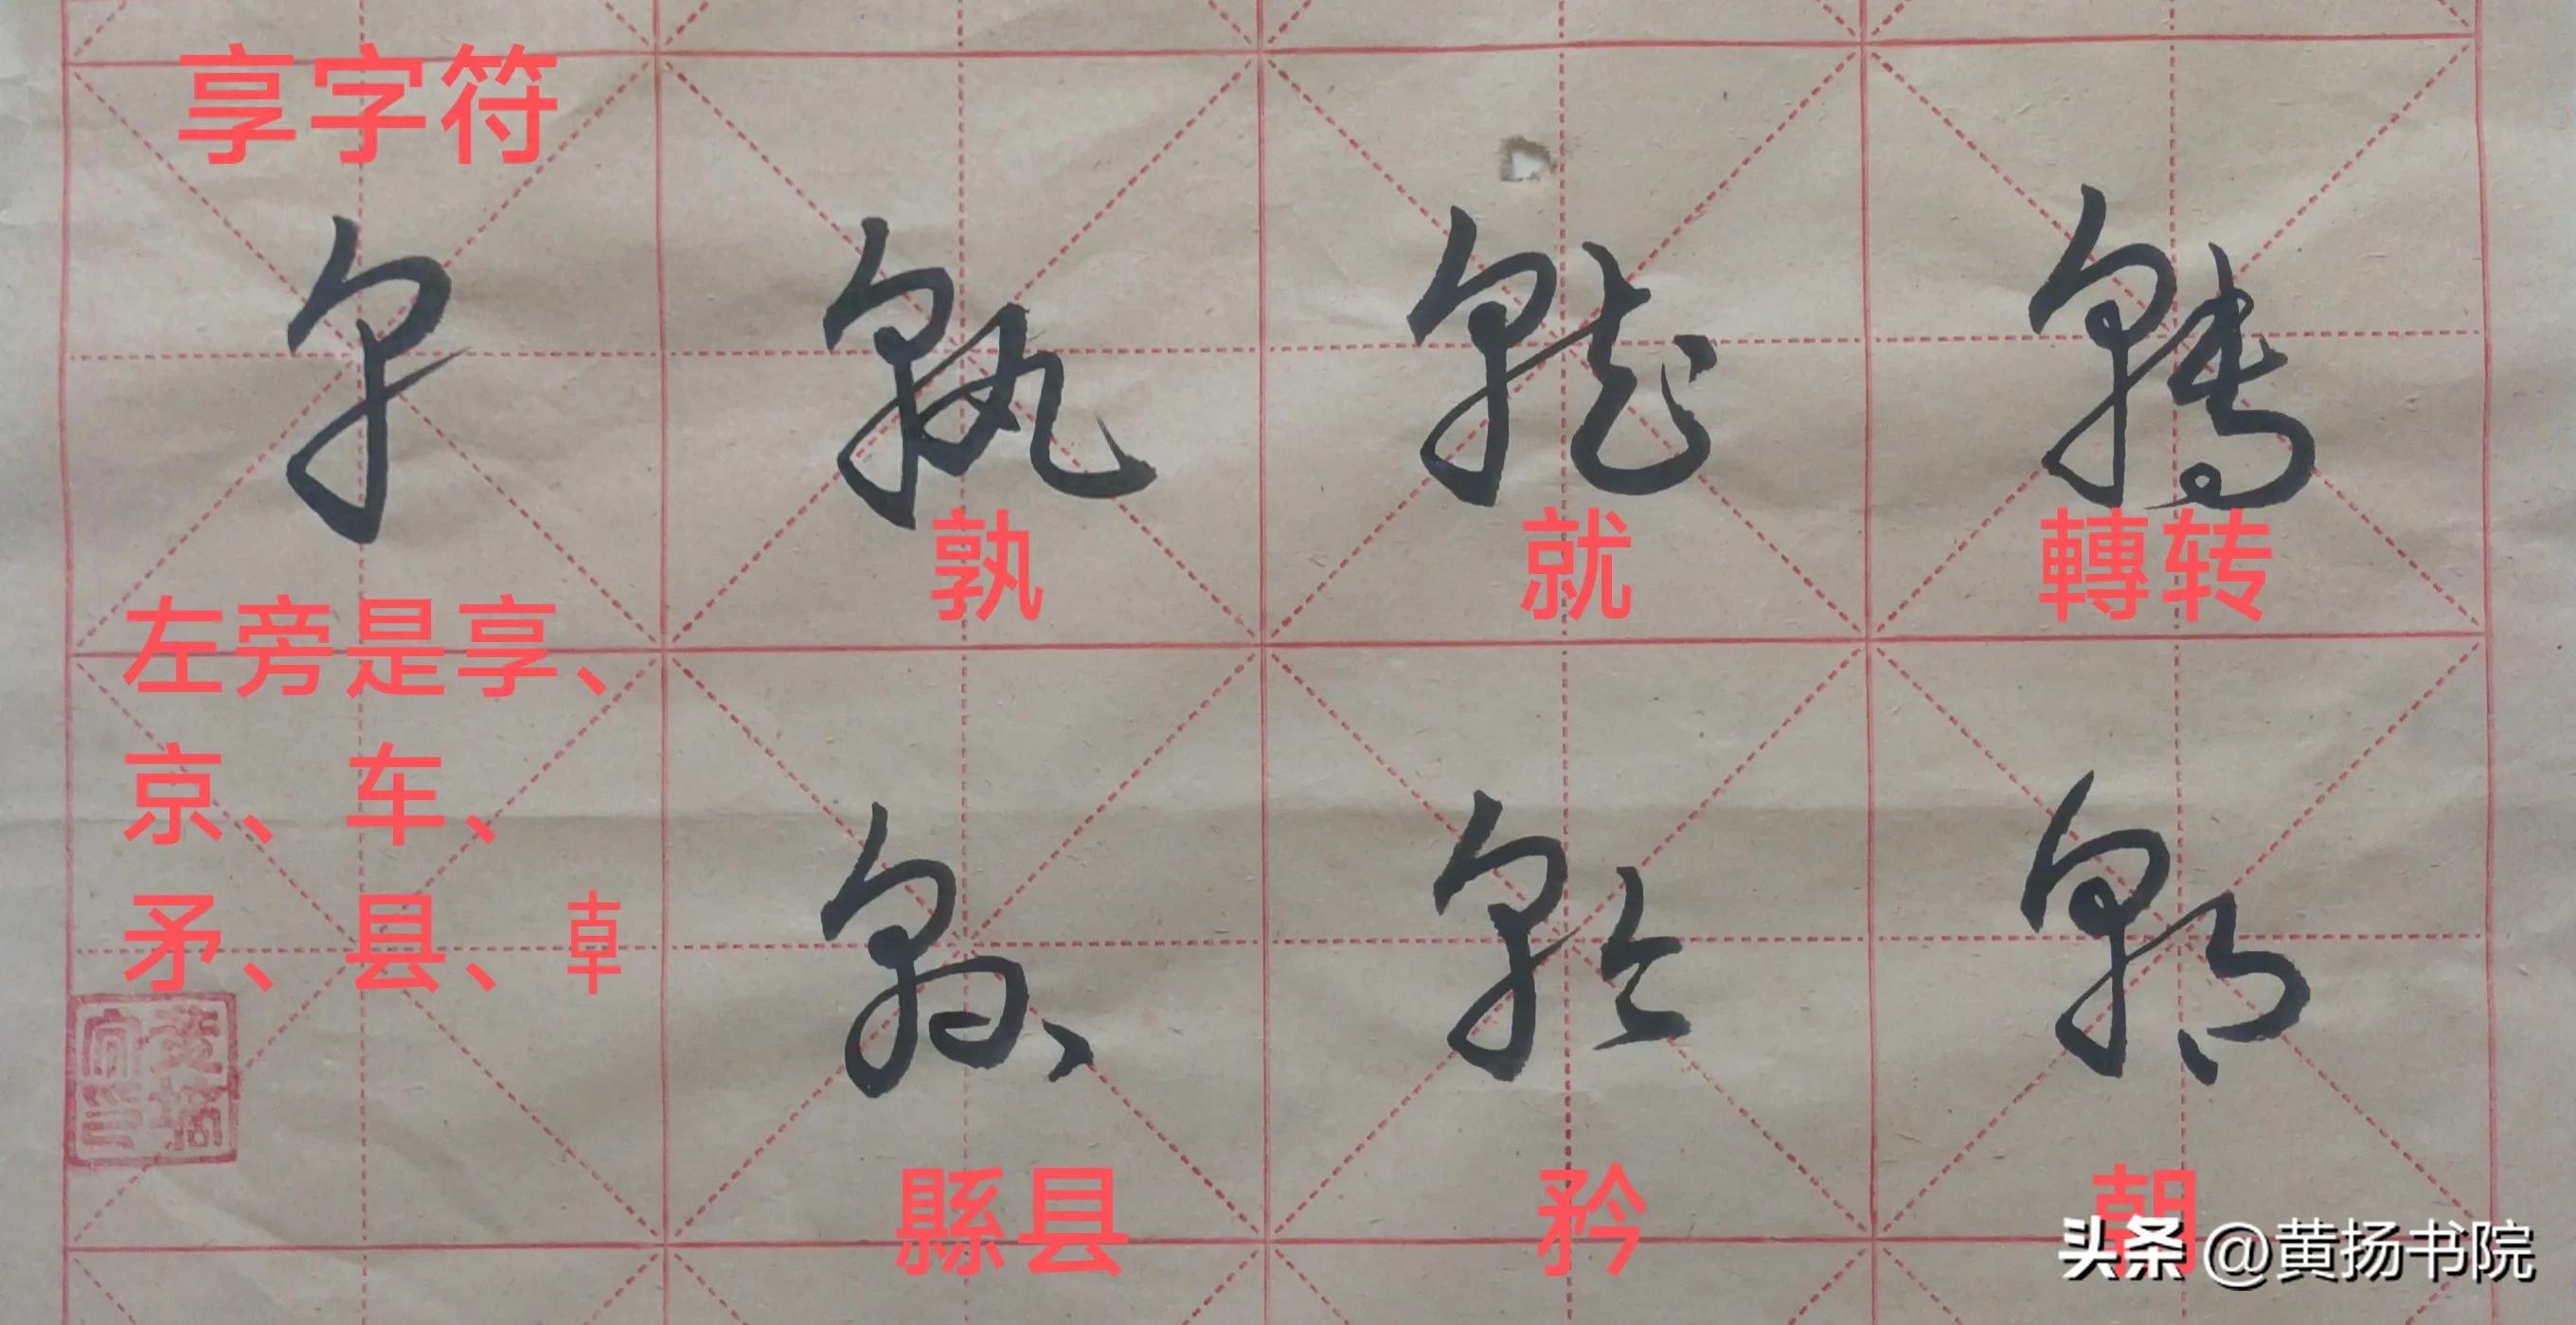 享字符
孰
就
轉转
左旁是享、
京、车、
矛、县、𠦝
縣县
矜
朝
头条 @黄扬书院